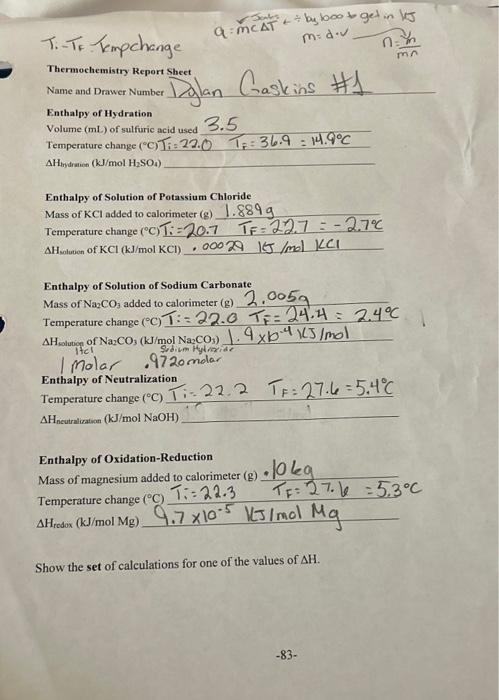 q=mcΔT ← ÷ by 1000 to get in KJ
Joules
Ti-TF Tempchange
m=d·v
Thermochemistry Report Sheet
Name and Drawer Number Dylan Gaskins #1
Enthalpy of Hydration
Volume (mL) of sulfuric acid used 3.5
Temperature change (°C) Ti=22.0 TF=36.9 = 14.9°C
ΔHhydration (kJ/mol H₂SO₄)
Enthalpy of Solution of Potassium Chloride
Mass of KCl added to calorimeter (g) 1.889g
Temperature change (°C) Ti=20.7 TF=22.7 = -2.7°C
ΔHsolution of KCl (kJ/mol KCl) .00029 KJ/mol KCl
Enthalpy of Solution of Sodium Carbonate
Mass of Na₂CO₃ added to calorimeter (g) 2.005g
Temperature change (°C) Ti= 22.0 TF= 24.4 = 2.4°C
ΔHsolution of Na₂CO₃ (kJ/mol Na₂CO₃) 1.9x10⁻⁴ KJ/mol
Hcl Sodium Hydroxide
1 Molar .9720molar
Enthalpy of Neutralization
Temperature change (°C) Ti=22.2 TF=27.6=5.4°C
ΔHneutralization (kJ/mol NaOH)
Enthalpy of Oxidation-Reduction
Mass of magnesium added to calorimeter (g)
Temperature change (°C) Ti=22.3 TF=27.6 =5.3°C
ΔHredox (kJ/mol Mg) 9.7x10⁻⁵ KJ/mol Mg
Show the set of calculations for one of the values of ΔH.
-83-